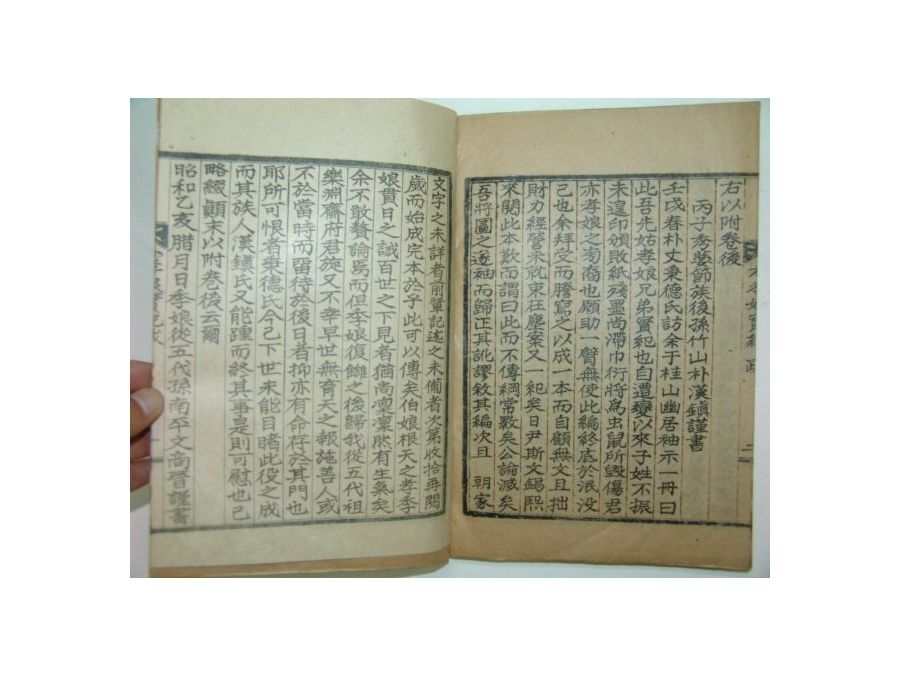 右以附卷後
丙子秀葽節族後孫竹山朴漢鎭謹書
壬戊春朴丈秉德氏訪余于桂山幽居袖示一冊曰
此吾先姑孝娘兄弟實紀也自遭變以來子姓不振
未遑印頒敗紙殘墨尚滯巾衍將爲虫鼠所毀傷君
亦孝娘之裔也願助一臂無使此編終底於泯没
己也余拜受而謄寫之以成一本而自顧無文且拙
財力經營未就束在塵案又一紀矣日尹斯文錫熙
來閱此本歎而謂曰此而不傳綱常斁矣公論滅矣
吾將圖之遂袖而歸正其訛謬敘其編次且 朝家
文字之未詳者前輩記述之未備者次第收拾再閱
歲而始成完本於乎此可以傳矣伯娘根天之孝季
娘貫日之誠百世之下見者猶尚凜凜然有生氣矣
余不敢贅論焉而但季娘復讎之後歸我從五代祖
樂淵齋府君旋又不幸早世無育天之報施善人或
不於當時而留待於後日者抑亦有命存於其門也
耶所可恨者秉德氏今已下世未能目睹此役之成
而其族人漢鎭氏又能踵而終其事是則可慰也已
略綴顚末以附卷後云爾
昭和乙亥腊月日季娘從五代孫南平文高晉謹書